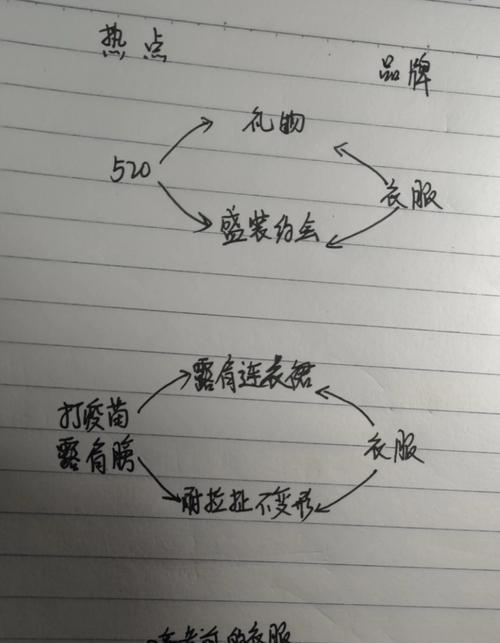 热点
品牌
礼物
520
衣服
盛装约会
露肩连衣裙
打疫苗
露肩膀
衣服
耐拉扯不变形
的衣服